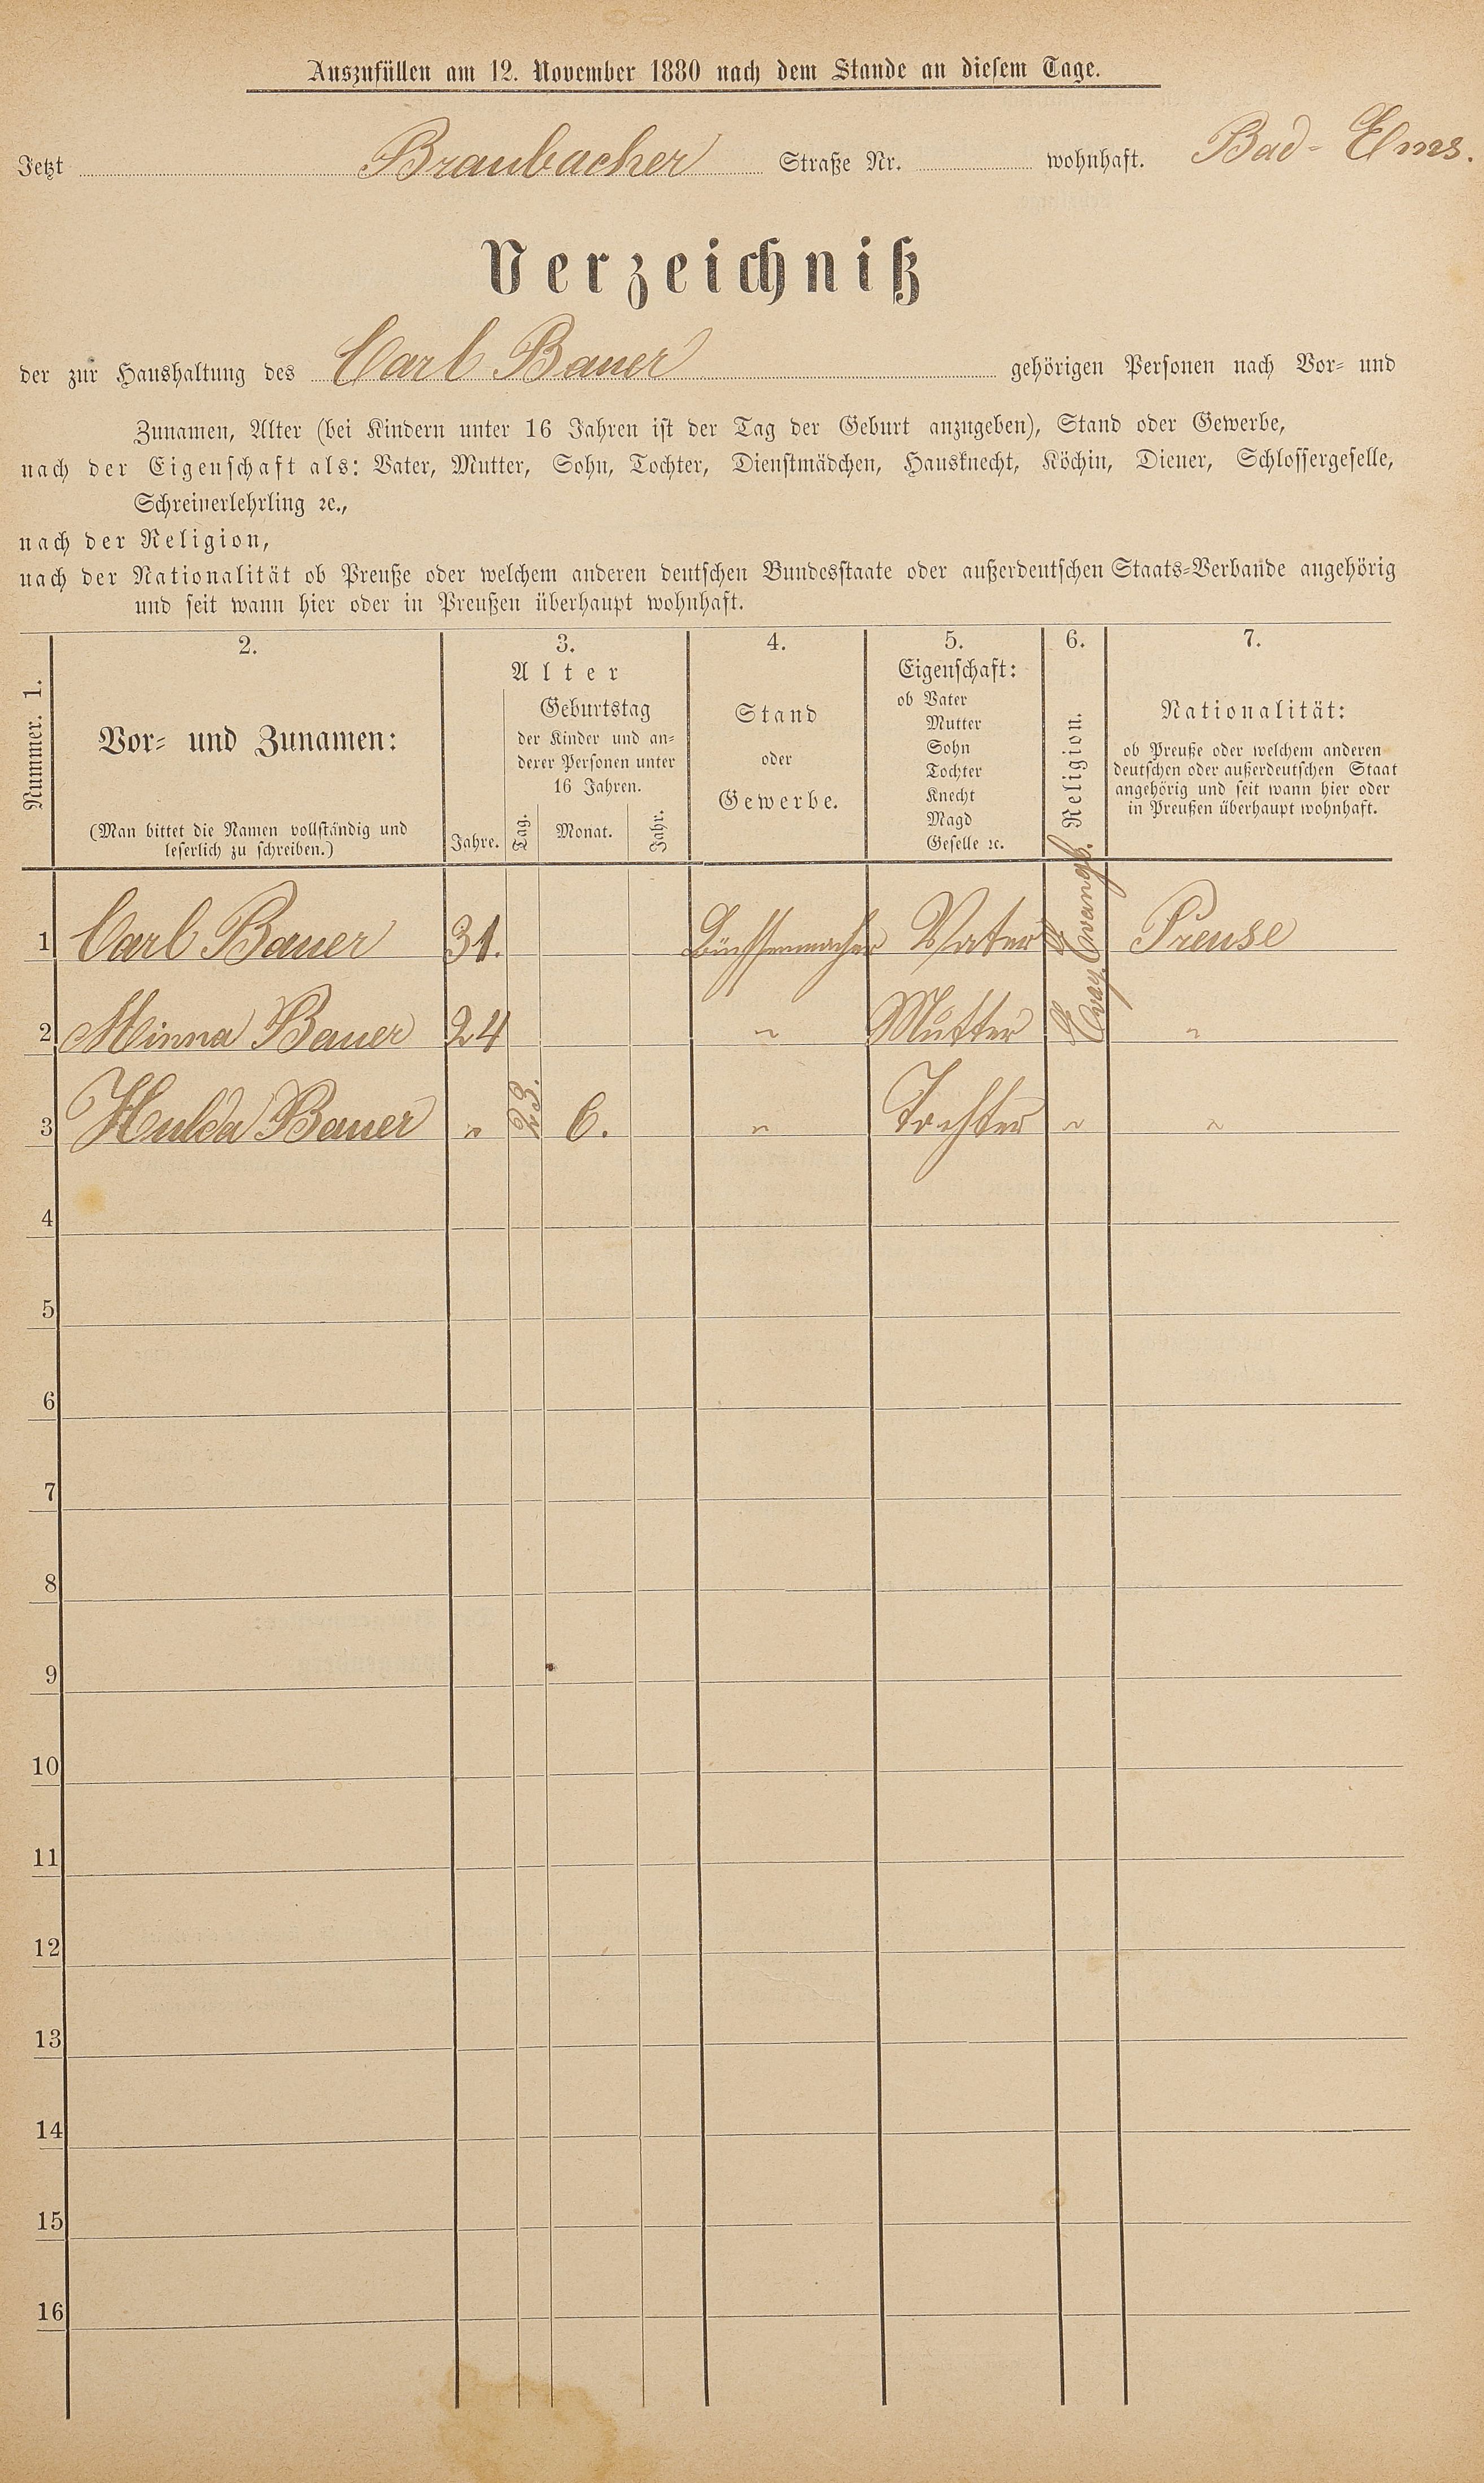 Auszufüllen am 12. November 1880 nach dem Stande an diesem Tage.
Jetzt Braubacher Straße Nr. wohnhaft. Bad-Ems.
Verzeichniß
der zur Haushaltung des Carl Bauer gehörigen Personen nach Vor- und
Zunamen, Alter (bei Kindern unter 16 Jahren ist der Tag der Geburt anzugeben), Stand oder Gewerbe,
nach der Eigenschaft als: Vater, Mutter, Sohn, Tochter, Dienstmädchen, Hausknecht, Köchin, Diener, Schlossergeselle,
Schreinerlehrling ꝛc.,
nach der Religion,
nach der Nationalität ob Preuße oder welchem anderen deutschen Bundesstaate oder außerdeutschen Staats-Verbande angehörig
und seit wann hier oder in Preußen überhaupt wohnhaft.
Nummer. 1.
2.
Vor- und Zunamen:
(Man bittet die Namen vollständig und
leserlich zu schreiben.)
3.
Alter
Jahre.
Geburtstag
der Kinder und an-
derer Personen unter
16 Jahren.
Tag. Monat. Jahr.
4.
Stand
oder
Gewerbe.
5.
Eigenschaft:
ob Vater
Mutter
Sohn
Tochter
Knecht
Magd
Geselle ꝛc.
6.
Religion.
7.
Nationalität:
ob Preuße oder welchem anderen
deutschen oder außerdeutschen Staat
angehörig und seit wann hier oder
in Preußen überhaupt wohnhaft.
1 Carl Bauer 31. Büchsenmacher Vater Evangl. Preuse
2 Minna Bauer 24 " Mutter Evag. "
3 Hulda Bauer " 23. 6. " Tochter " "
4
5
6
7
8
9
10
11
12
13
14
15
16